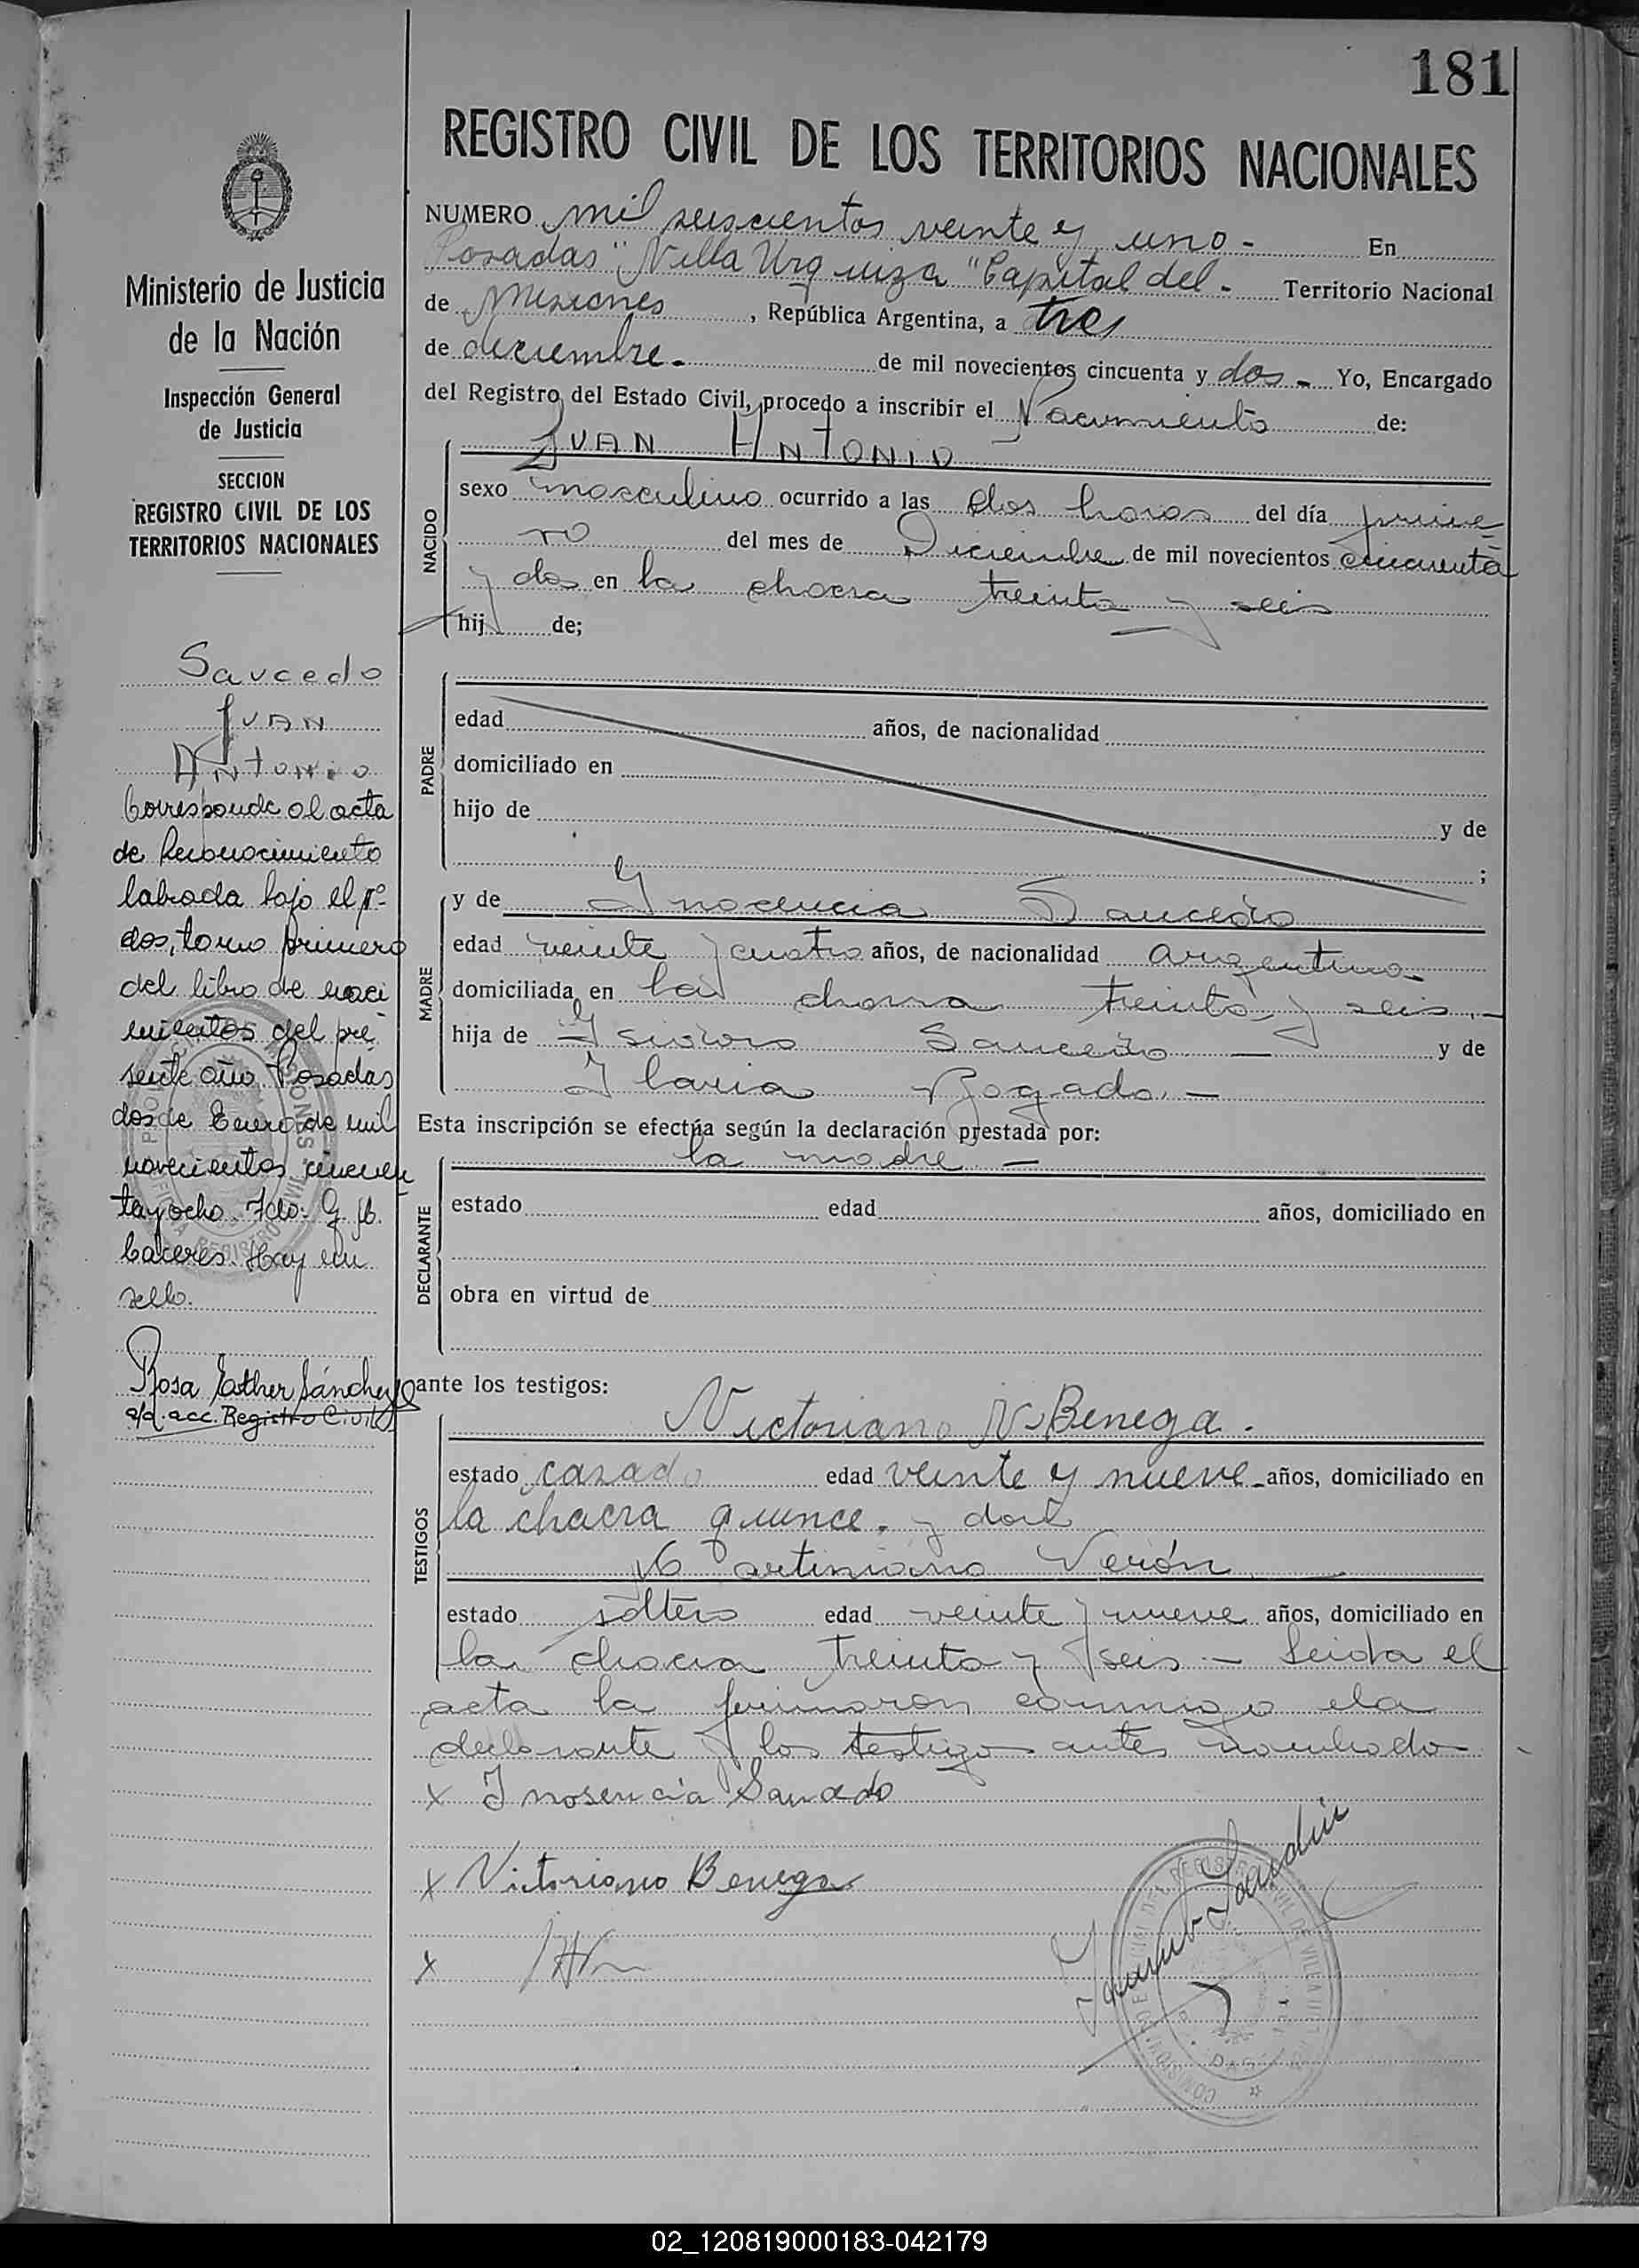 181
REGISTRO CIVIL DE LOS TERRITORIOS NACIONALES
NUMERO mil seiscientos veinte y uno - En
Posadas "Villa Urquiza" Capital del - Territorio Nacional
de Misiones, República Argentina, a tres
de diciembre - de mil novecientos cincuenta y dos - Yo, Encargado
del Registro del Estado Civil, procedo a inscribir el Nacimiento de:
JUAN ANTONIO
NACIDO
sexo masculino ocurrido a las dos horas del día prime
ro del mes de Diciembre de mil novecientos cincuenta
y dos en la chacra treinta y seis
hij de;
PADRE
edad años, de nacionalidad
domiciliado en
hijo de y de
;
MADRE
y de Inocencia Saucedo
edad veinte y cuatro años, de nacionalidad argentina
domiciliada en la chacra treinta y seis. -
hija de Isidoro Saucedo — y de
Ilaria Rogado. -
Esta inscripción se efectúa según la declaración prestada por:
la madre -
DECLARANTE
estado edad años, domiciliado en
obra en virtud de
ante los testigos:
TESTIGOS
Victoriano V. Benega.
estado casado edad veinte y nueve - años, domiciliado en
la chacra quince. y don
Verón
estado soltero edad veinte y nueve años, domiciliado en
la chacra treinta y seis - Leida el
acta la firmaron conmigo ela
declarante y los testigos antes nombrado
x Inosencia Saucedo
x Victoriano Benega
x
Ministerio de Justicia
de la Nación
Inspección General
de Justicia
SECCION
REGISTRO CIVIL DE LOS
TERRITORIOS NACIONALES
Saucedo
JUAN
ANTONIO
Corresponde al acta
de Reconocimiento
labrada bajo el nº
dos, tomo primero
del libro de naci
mientos del pre
sente año. Posadas
dos de Enero de mil
novecientos cincuen
ta y ocho. Fdo: G. H.
Caceres. Hay un
sello.
Rosa Esther Sánchez
a/d. acc. Registro Civil
02_120819000183-042179